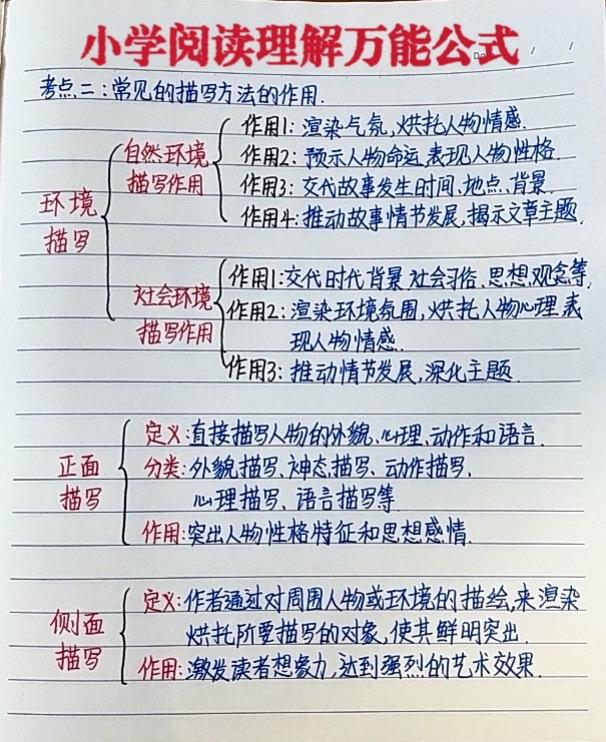 小学阅读理解万能公式
考点二:常见的描写方法的作用.
环境
描写
自然环境
描写作用
作用1:渲染气氛,烘托人物情感.
作用2:预示人物命运,表现人物性格.
作用3:交代故事发生时间、地点、背景.
作用4:推动故事情节发展,揭示文章主题.
社会环境
描写作用
作用1:交代时代背景 社会习俗、思想、观念等,
作用2:渲染环境氛围,烘托人物心理,表
现人物情感.
作用3:推动情节发展,深化主题.
正面
描写
定义:直接描写人物的外貌、心理、动作和语言.
分类:外貌描写、神态描写、动作描写、
心理描写、语言描写等
作用:突出人物性格特征和思想感情.
侧面
描写
定义:作者通过对周围人物或环境的描绘,来渲染
烘托所要描写的对象,使其鲜明突出.
作用:激发读者想象力,达到强烈的艺术效果.